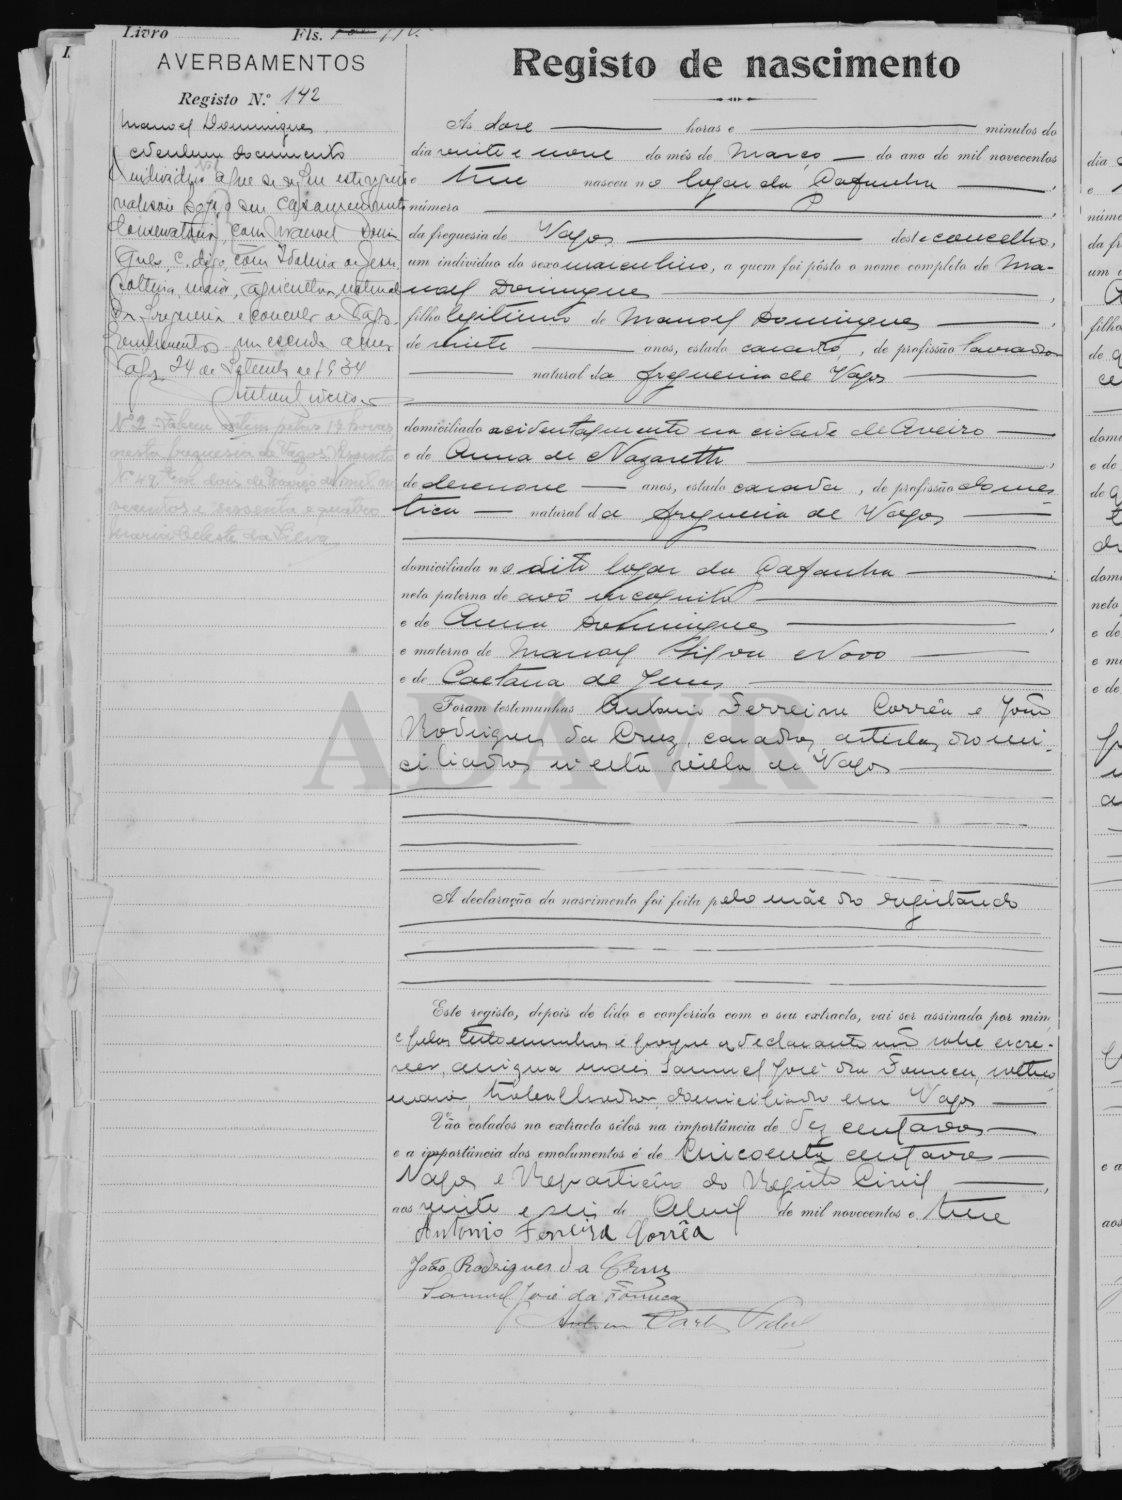 Livro Fls.
AVERBAMENTOS
Registo N.º 142
Manoel Domingues
Nenhum documento
individuo a que se refere este registo
realisou hoje o seu casamento n'esta
Conservatoria, com Manoel Domin
gues, C. digo, com Idalina de Jesus,
solteira, maior, agricultora, natural
da freguesia e concelho de Vagos.
Emolumentos, um escudo
Vagos 24 de Setembro de 1934
Nº 2 = Faleceu ontem pelas 12 horas
nesta freguesia de Vagos. Registo
Nº 49. em dois de Março de mil no
vecentos e sessenta e quatro
Maria Celeste da Silva
Registo de nascimento
Ás doze horas e minutos do
dia vinte e nove do mês de Março do ano de mil novecentos
e treze nasceu no logar da Gafanha,
número
da freguesia de Vagos deste concelho,
um indivíduo do sexo masculino, a quem foi pôsto o nome completo de Ma-
noel Domingues,
filho legitimo de Manoel Domingues,
de vinte anos, estado casado, de profissão lavrador
natural da freguesia de Vagos
domiciliado acidentalmente na cidade de Aveiro
e de Anna de Nazareth,
de dezenove anos, estado casada, de profissão domes
tica natural da freguesia de Vagos
domiciliada no dito logar da Gafanha;
neto paterno de avô incognito
e de Anna Domingues,
e materno de Manoel Silva Novo
e de Caetana de Jesus
Foram testemunhas Antonio Ferreira Corrêa e João
Rodrigues da Cruz, casados, artistas, domi-
ciliados n'esta villa de Vagos
A declaração do nascimento foi feita pela mãe do registando
Este registo, depois de lido e conferido com o seu extracto, vai ser assinado por mim,
e pelas testemunhas e porque a declarante não sabe escre-
ver, assigna mais Samuel José da Fonseca, solteiro,
maior, trabalhador, domiciliado em Vagos
Vão colados no extracto sêlos na importância de dez centavos
e a importância dos emolumentos é de Cincoenta centavos
Vagos e Repartição do Registo Civil,
aos vinte e seis de Abril de mil novecentos e treze
Antonio Ferreira Corrêa
João Rodrigues da Cruz
Samuel José da Fonseca
ADAVR